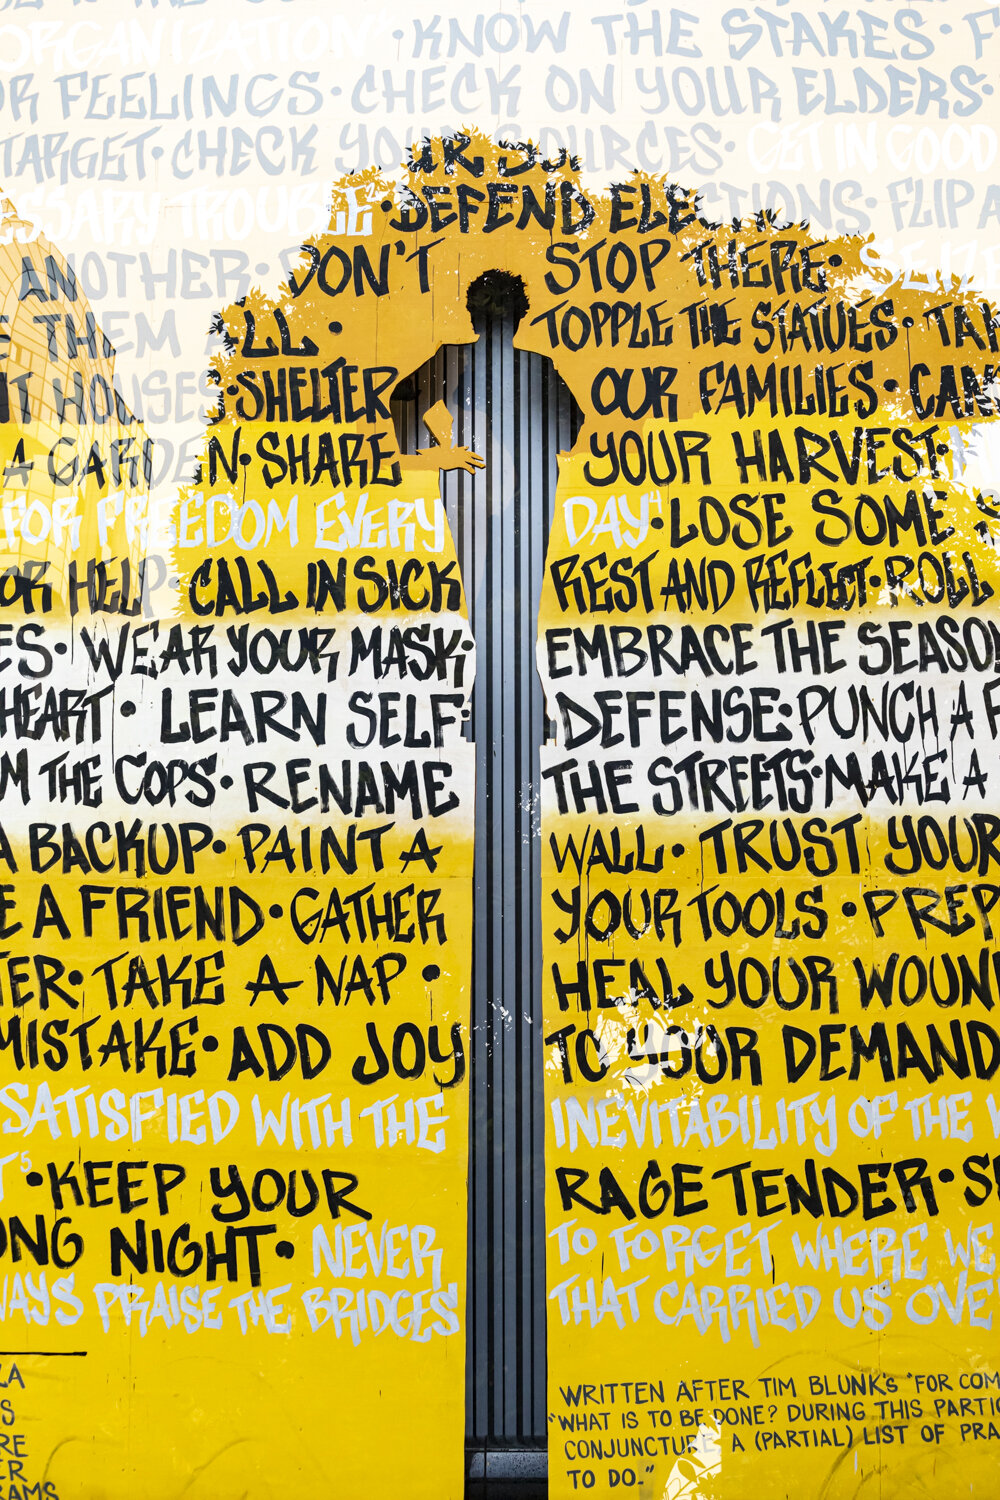 ORGANIZATION" • KNOW THE STAKES •
FEELINGS • CHECK ON YOUR ELDERS •
TARGET • CHECK YOUR SOURCES • GET IN GOOD
TROUBLE² • DEFEND ELECTIONS • FLIP A
ANOTHER • DON'T STOP THERE • SEIZE
THEM ALL • TOPPLE THE STATUES •
HOUSES • SHELTER OUR FAMILIES •
A GARDEN • SHARE YOUR HARVEST •
FOR FREEDOM EVERY DAY⁴ • LOSE SOME
HELP • CALL IN SICK REST AND REFLECT • ROLL
WEAR YOUR MASK • EMBRACE THE
HEART • LEARN SELF-DEFENSE • PUNCH A
THE COPS • RENAME THE STREETS • MAKE A
A BACKUP • PAINT A WALL • TRUST YOUR
A FRIEND • GATHER YOUR TOOLS •
TAKE A NAP • HEAL YOUR
MISTAKE • ADD JOY TO YOUR
SATISFIED WITH THE INEVITABILITY OF THE
⁵ • KEEP YOUR RAGE TENDER •
NIGHT • NEVER TO FORGET WHERE WE
PRAISE THE BRIDGES THAT CARRIED US
WRITTEN AFTER TIM BLUNK'S "FOR
"WHAT IS TO BE DONE? DURING THIS
CONJUNCTURE, A (PARTIAL) LIST OF
TO DO."